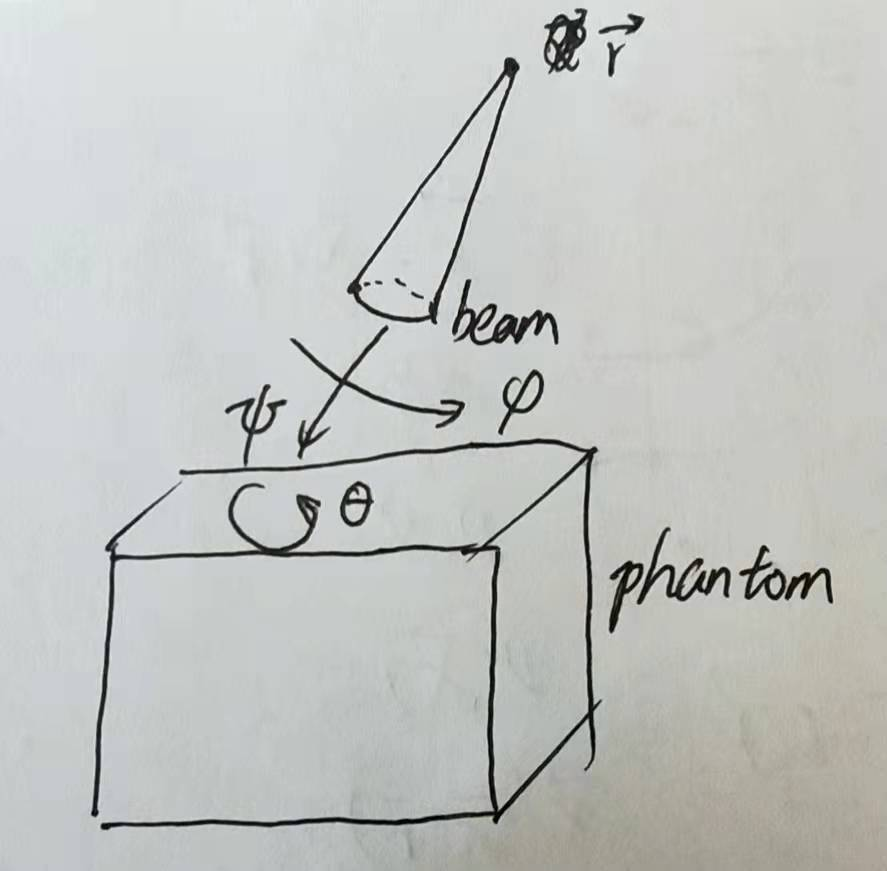 r⃗
beam
φ
ψ
θ
phantom